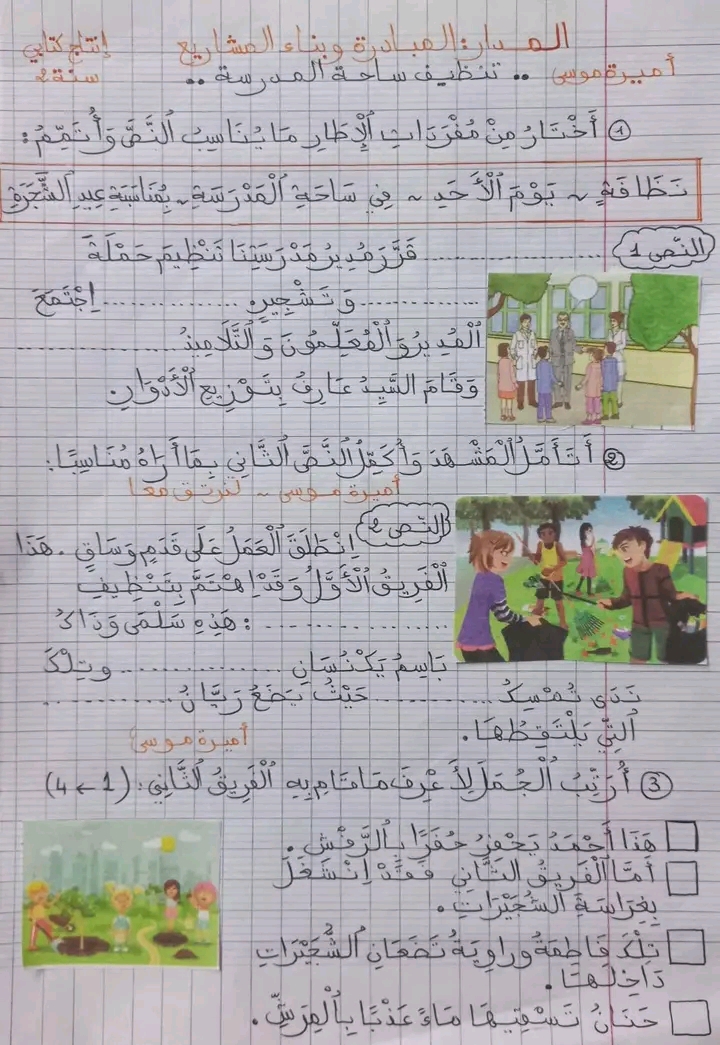 المدار: المبادرة وبناء المشاريع إنتاج كتابي
أميرة موسى .. تنظيف ساحة المدرسة .. سنة 2
① أَخْتَارُ مِنْ مُفْرَدَاتِ الْإِطَارِ مَا يُنَاسِبُ النَّصَّ وَأُتَمِّمُ:
نَظَافَةٍ ~ يَوْمَ الْأَحَدِ ~ فِي سَاحَةِ الْمَدْرَسَةِ ~ بِمُنَاسَبَةِ عِيدِ الشَّجَرَةِ
النّص 1
.................... قَرَّرَ مُدِيرُ مَدْرَسَتِنَا تَنْظِيمَ حَمْلَةَ
.............. وَتَشْجِيرٍ ............. اِجْتَمَعَ
الْمُدِيرُ وَالْمُعَلِّمُونَ وَالتَّلَامِيذُ ....................
وَقَامَ السَّيِّدُ عَارِفُ بِتَوْزِيعِ الْأَدْوَارِ
② أَتَأَمَّلُ الْمَشْهَدَ وَأُكَمِّلُ النَّصَّ الثَّانِي بِمَا أَرَاهُ مُنَاسِبًا:
أميرة موسى ~ لنرتق معا
النّص 2
اِنْطَلَقَ الْعَمَلُ عَلَى قَدَمٍ وَسَاقٍ. هَذَا
الْفَرِيقُ الْأَوَّلُ وَقَدْ اِهْتَمَّ بِتَنْظِيفِ
.................... : هَذِهِ سَلْمَى وَذَاكَ
بَاسِمُ يَكْنُسَانِ ................ وَتِلْكَ
نَدَى تُمْسِكُ ............... حَيْثُ يَضَعُ رَيَّانُ ...............
الَّتِي يَلْتَقِطُهَا.
أميرة موسى
③ أُرَتِّبُ الْجُمَلَ لِأَعْرِفَ مَا قَامَ بِهِ الْفَرِيقُ الثَّانِي: (1 ← 4)
هَذَا أَحْمَدُ يَحْفِرُ حُفَرًا بِالرَّفْشِ.
أَمَّا الْفَرِيقُ الثَّانِي فَقَدْ اِنْشَغَلَ
بِغِرَاسَةِ الشُّجَيْرَاتِ.
تِلْكَ فَاطِمَةُ وَرَاوِيَةُ تَضَعَانِ الشُّجَيْرَاتِ
دَاخِلَهَا.
حَنَانُ تَسْقِيهَا مَاءً عَذْبًا بِالْمِرَشِّ.